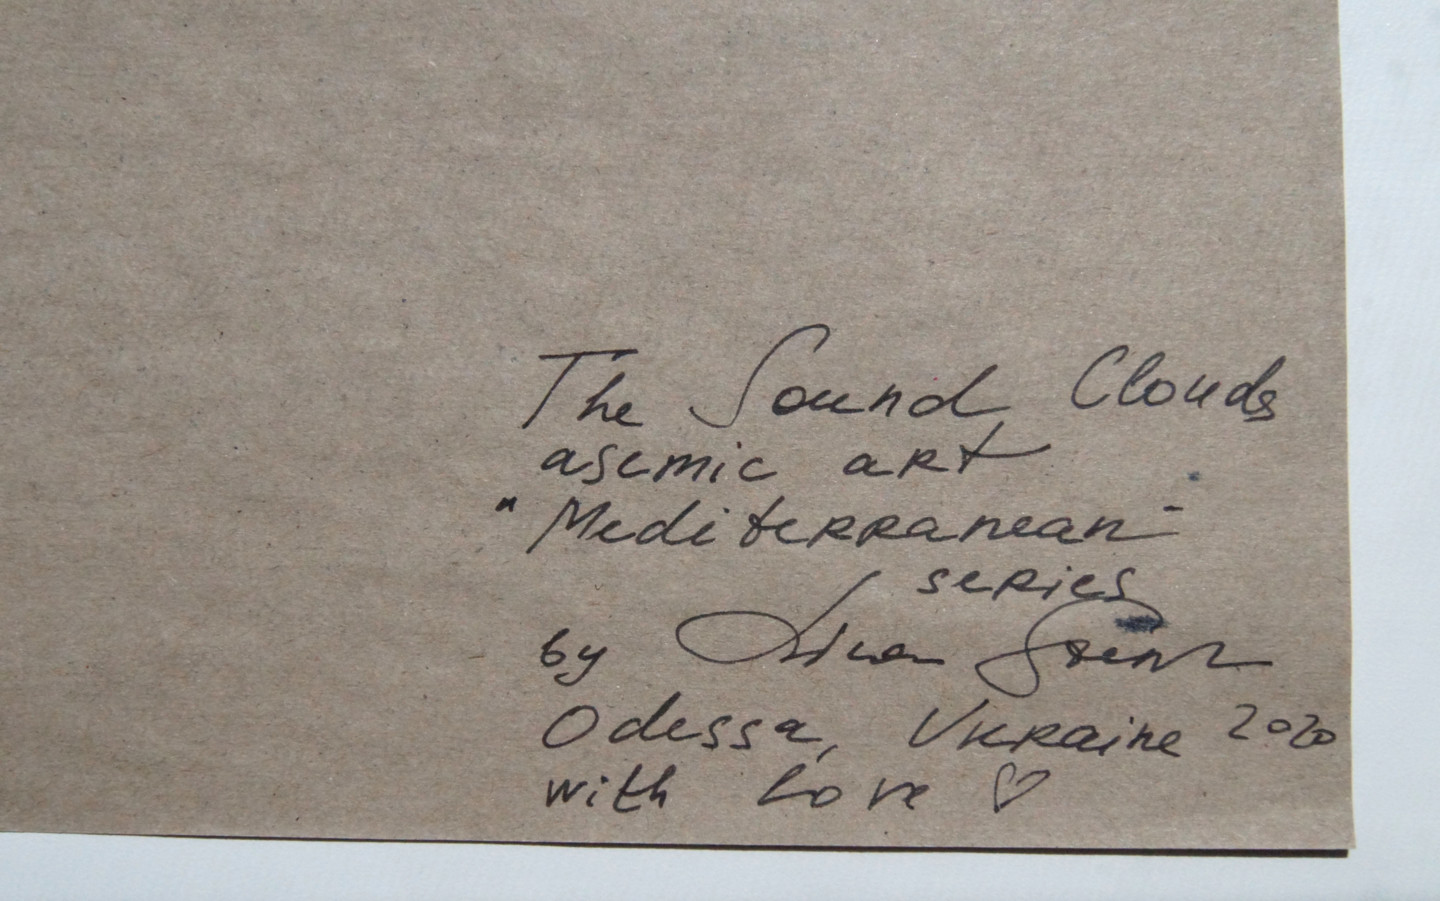 The Sound Clouds
asemic art
"Mediterranean"
series
by
Odessa, Ukraine 2020
with Love ♡